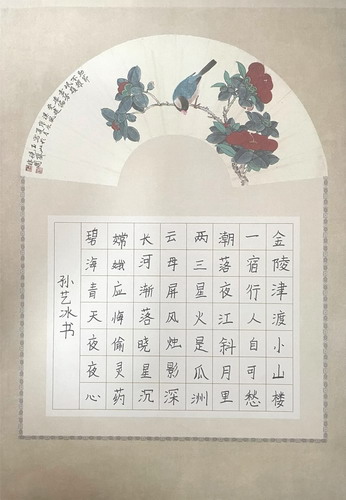 金陵津渡小山楼
一宿行人自可愁
潮落夜江斜月里
两三星火是瓜洲
云母屏风烛影深
长河渐落晓星沉
嫦娥应悔偷灵药
碧海青天夜夜心
孙艺冰书